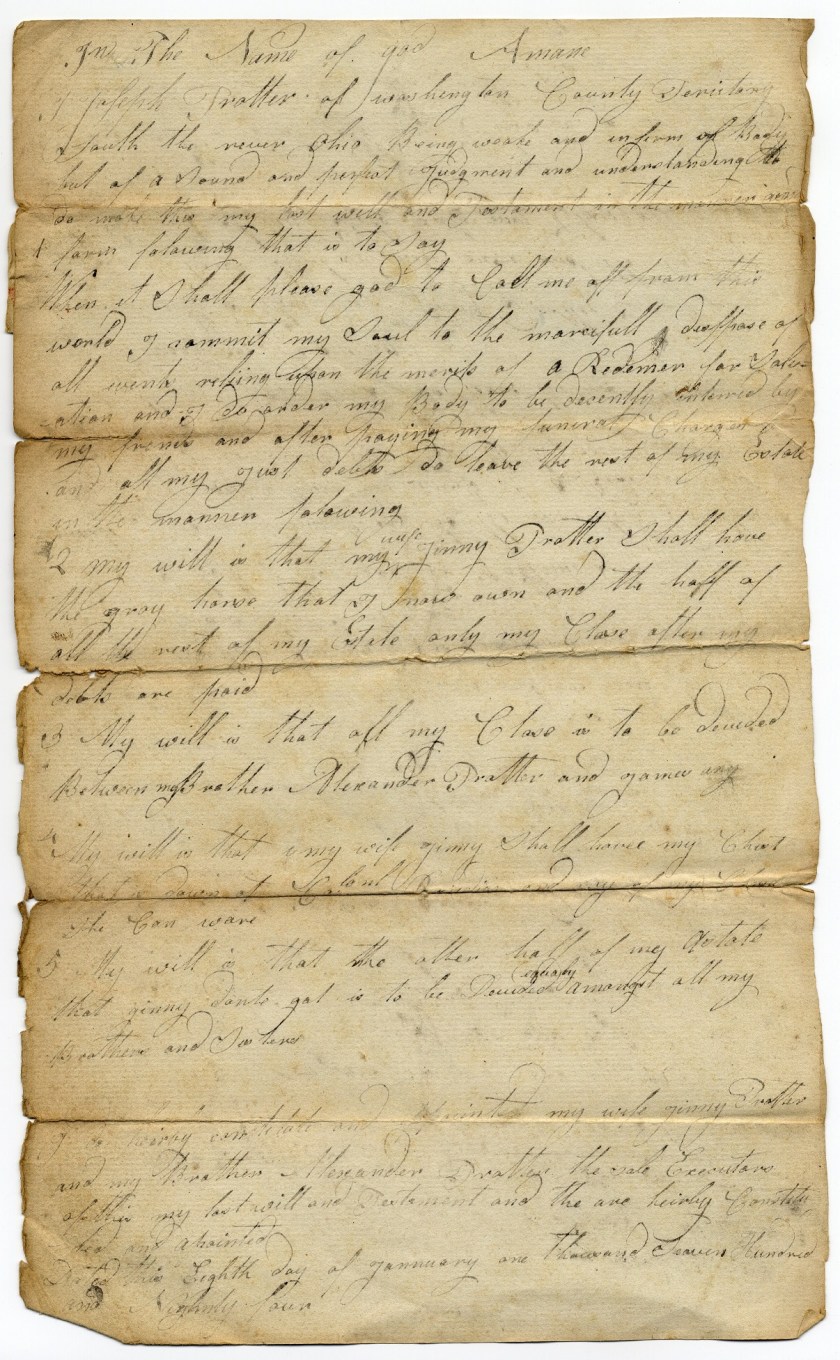 In The Name of god Amane
I Joseph Trotter of washington County Teritory
South the rever ohio Being weake and inferm of Body
but of a Sound and perfect Judgment and understanding
do make this my last will and Testament in the manner and
1 form folowing that is to Say
When it Shall please god to Call me off from this
world I commit my Soul to the marcifull disspose of
all relying upon the merits of a Redemer for Salv-
ation and I Do order my Body to be desently intered by
my frends and after paying my funeral Charges
and all my Just debts I do leave the rest of my Estate
in the mannen folowing
2 my will is that my wife Jinny Trotter Shall have
the gray horse that I now own and the half of
all the rest of my Estate only my Close after my
debts are paid
3 My will is that all my Close is to be devided
Between my Brother Alexander Trotter and James
4 My will is that my wife Jinny Shall have my Chest
that down at and
The Can ware
5 My will is that the other half of my Astate
that Jinny donts gat is to be Devided equaly Amongst all my
Brothers and Sisters
I constitute and Apointed my wife Jinny Trotter
and my Brother Alexander Trotter the sole Executors
of this my last will and Testament and the are heirby Constitu-
ted and apointed
Dated this Eighth Day of Jannuary one thousand Seaven Hundred
and Nighnty four